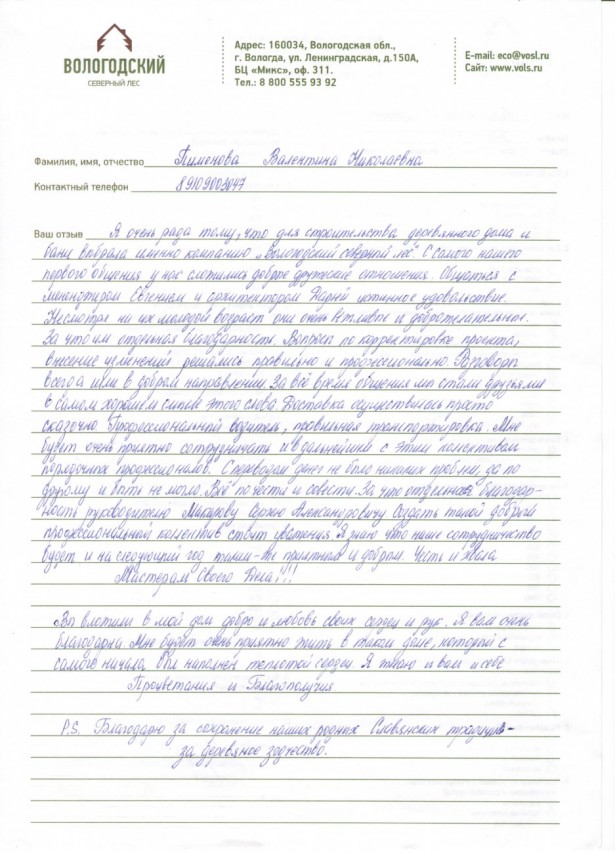 ВОЛОГОДСКИЙ
СЕВЕРНЫЙ ЛЕС
Адрес: 160034, Вологодская обл.,
г. Вологда, ул. Ленинградская, д.150А,
БЦ «Микс», оф. 311.
Тел.: 8 800 555 93 92
E-mail: eco@vosl.ru
Сайт: www.vols.ru
Фамилия, имя, отчество Пименова Валентина Николаевна
Контактный телефон 89109003047
Ваш отзыв Я очень рада тому, что для строительства деревянного дома и
бани выбрала именно кампанию „Вологодский северный лес“. С самого нашего
первого общения у нас сложились добрые дружеские отношения. Общаться с
менеджером Евгением и архитектором Дарьей истинное удовольствие.
Несмотря на их молодой возраст они очень и доброжелательные.
За что им отдельная благодарность. Вопросы по корректировке проекта,
внесение изменений решались правильно и профессионально. Разговоры
всегда шли в добром направлении. За всё время общения мы стали друзьями
в самом хорошем смысле этого слова. Доставка осуществилась просто
сказочно. Профессиональный водитель, правильная транспортировка. Мне
будет очень приятно сотрудничать и в дальнейшем с этим колективом
порядочных професионалов. С переводом денег не было никаких проблем, да по
другому и быть не могло. Всё по чести и совести. За что отдельная благодар-
ность руководителю Макарову Александровичу. Создать такой добрый
професиональный колектив стоит уважения. Я знаю что наше сотрудничество
будет и на следующий год таким-же приятным и добрым. Честь и Хвала
Мастерам Своего Дела!!!
Вы вложили в мой дом добро и любовь своих сердец и рук. Я вам очень
благодарна. Мне будет очень приятно жить в таком доме, который с
самого начала был наполнен теплотой сердец. Я желаю и вам и себе
Процветания и Благополучия
P.S. Благодарю за сохранение наших родных Славянских традиций-
за деревяное зодчество.